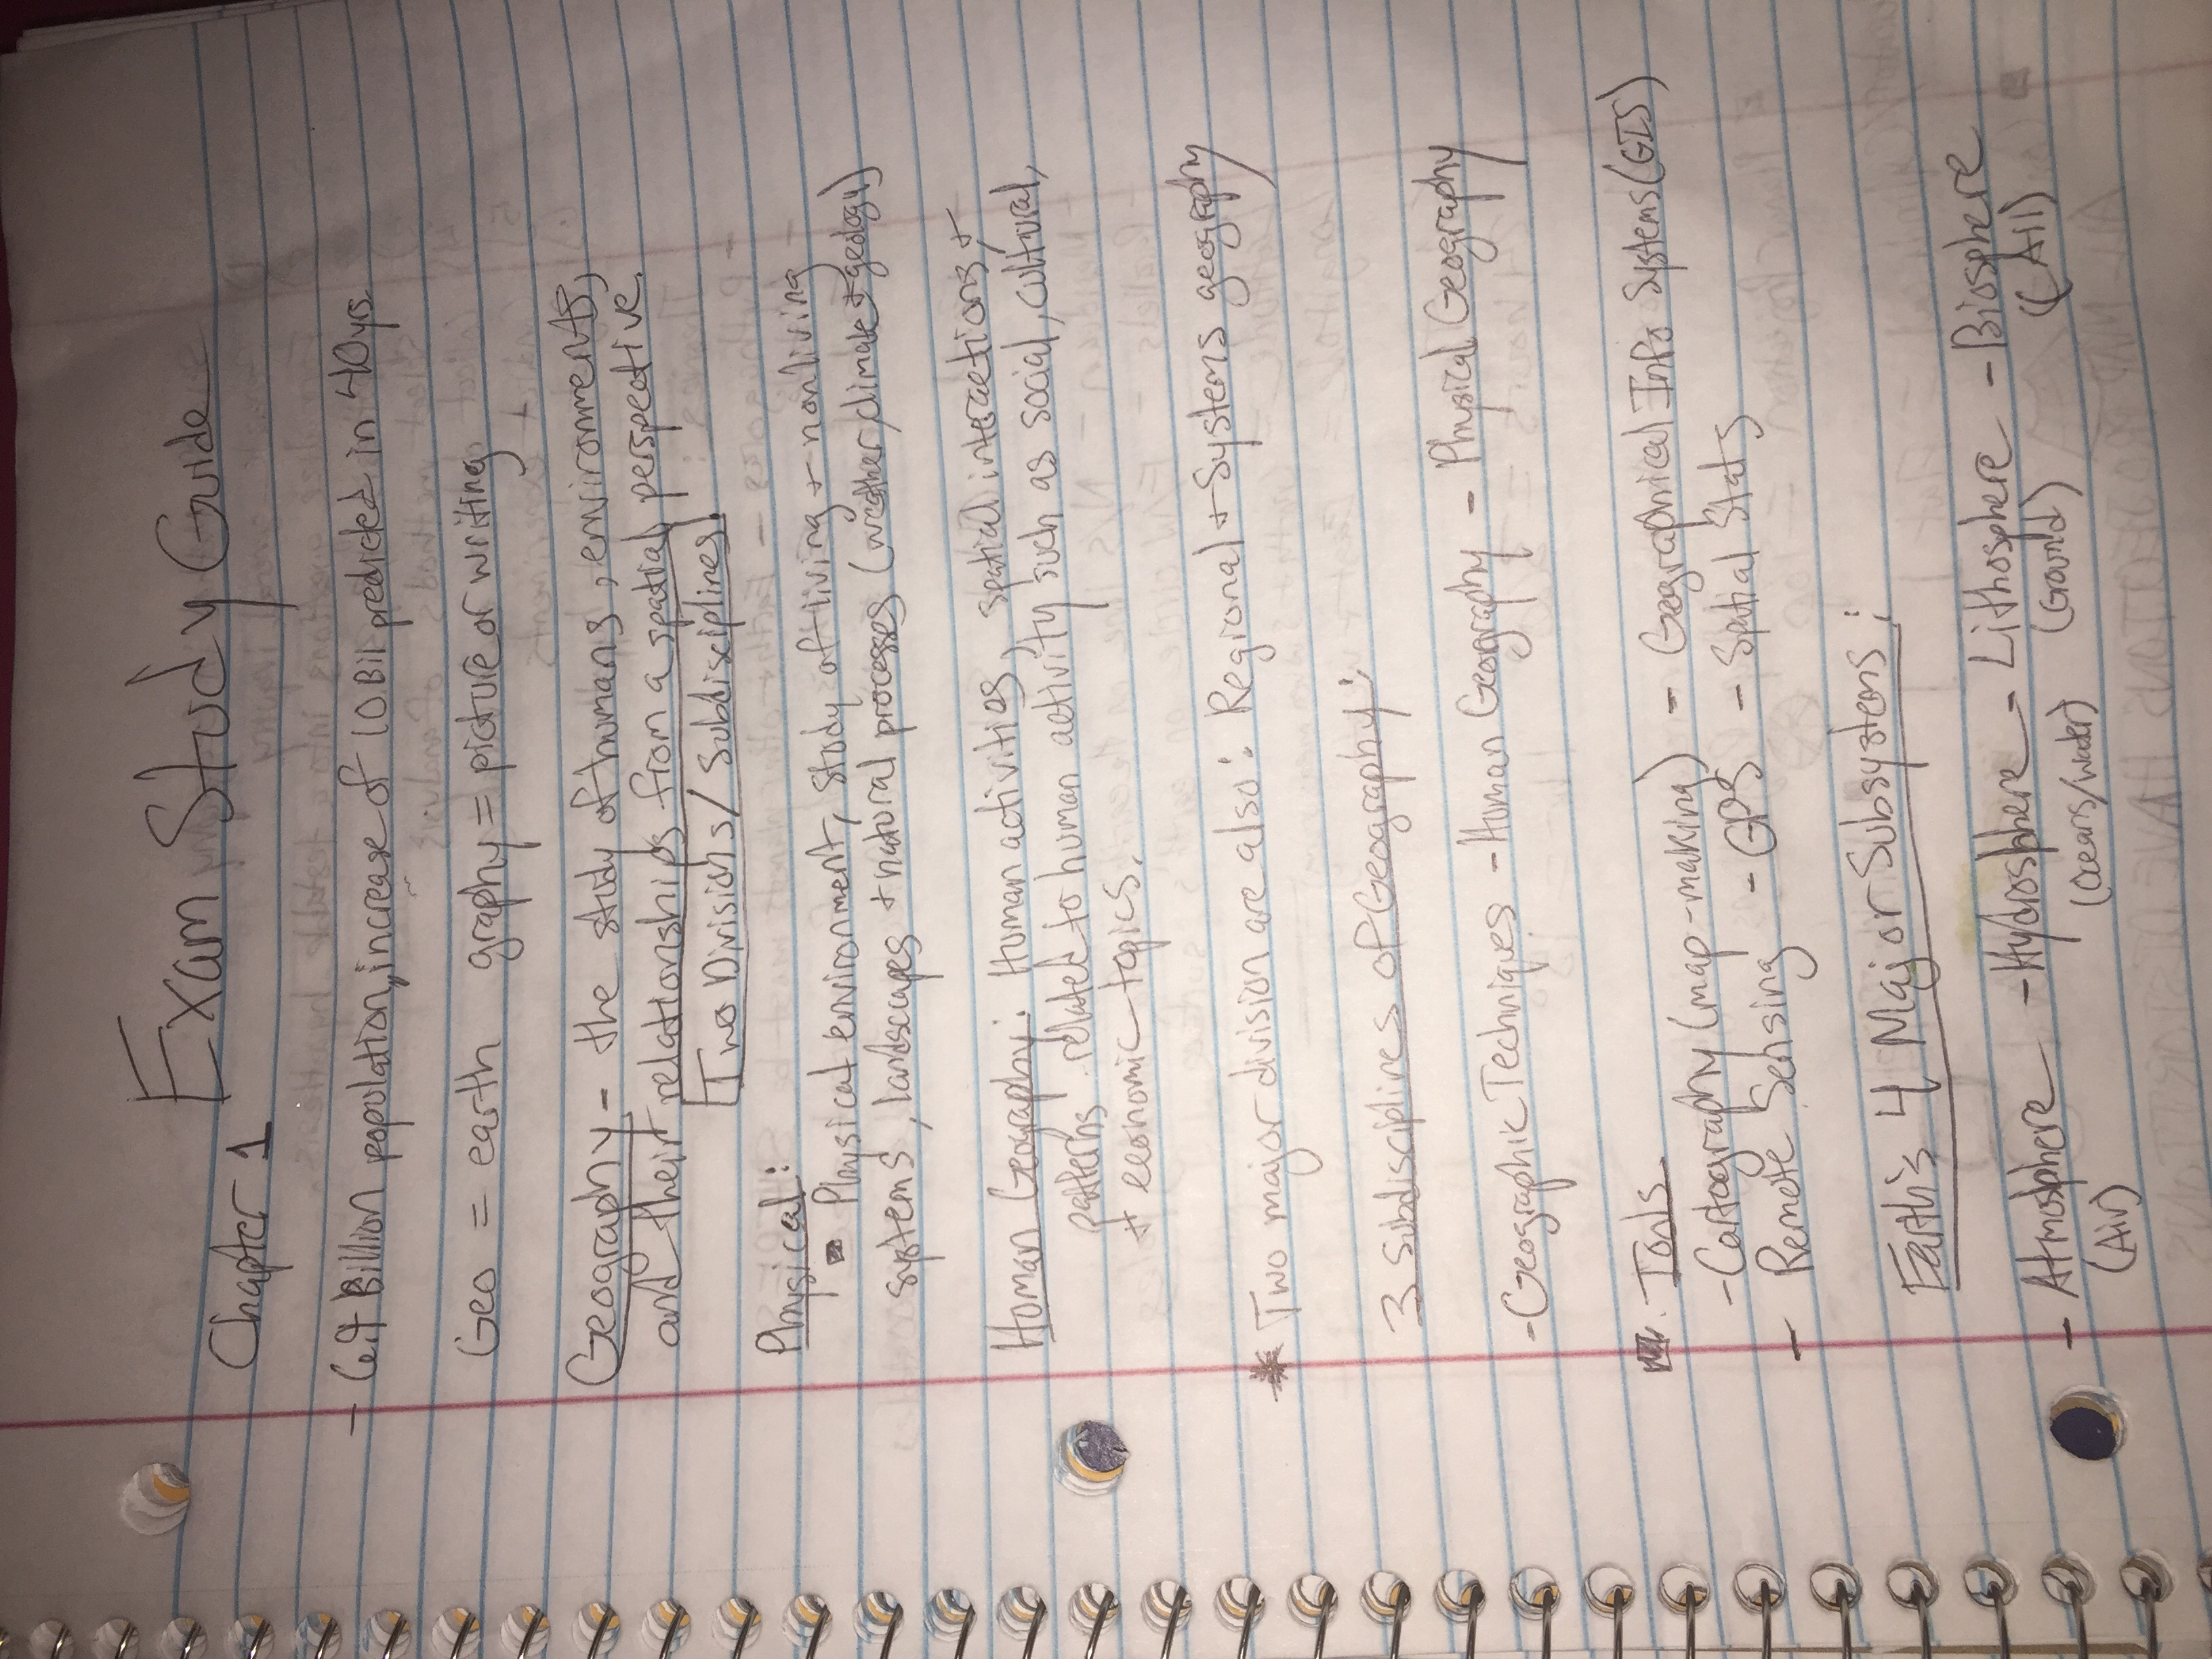 Exam Study Guide
Chapter 1
- 6.7 Billion population, increase of 10 Bil predicted in 40yrs.
Geo = earth graphy = picture or writing
Geography - the study of humans, environments,
and their relationships from a spatial perspective.
Two Divisions/Subdisciplines.
Physical:
Physical environment, study of living + nonliving
systems, landscapes + natural processes (weather/climate + geology)
Human Geography: Human activities, spatial interactions +
patterns related to human activity such as social, cultural,
+ economic topics.
* Two major division are also: Regional + Systems geography
3 subdisciplines of Geography:
- Geographic Techniques - Human Geography - Physical Geography
Tools
- Cartography (map-making) - Geographical Info Systems (GIS)
- Remote Sensing - GPS - Spatial Stats
Earth's 4 Major Subsystems:
- Atmosphere - Hydrosphere - Lithosphere - Biosphere
(Air) (Oceans/water) (Ground) (All)